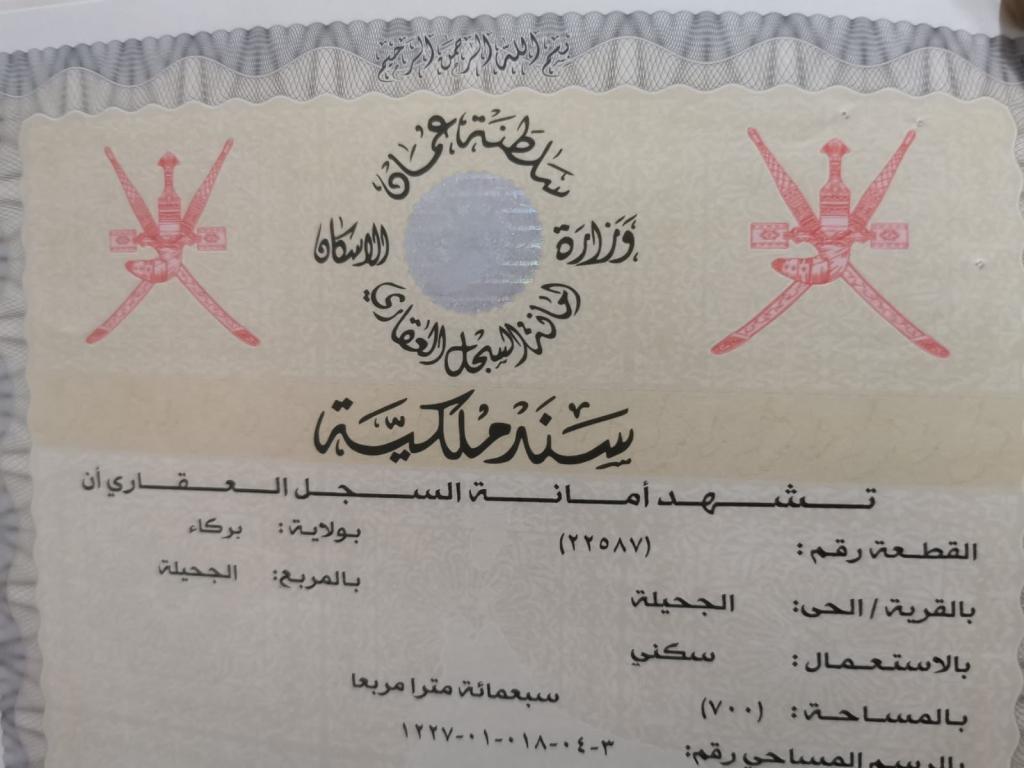 بسم الله الرحمن الرحيم
سلطنة عمان
وزارة الاسكان
امانة السجل العقاري
سند ملكية
تشهد أمانة السجل العقاري أن
القطعة رقم: (٢٢٥٨٧) بولاية: بركاء
بالقرية / الحى: الجحيلة بالمربع: الجحيلة
بالاستعمال: سكني
بالمساحة: (٧٠٠) سبعمائة مترا مربعا
بالرسم المساحي رقم: ٣-٠٤-٠١٨-٠١-١٢٢٧